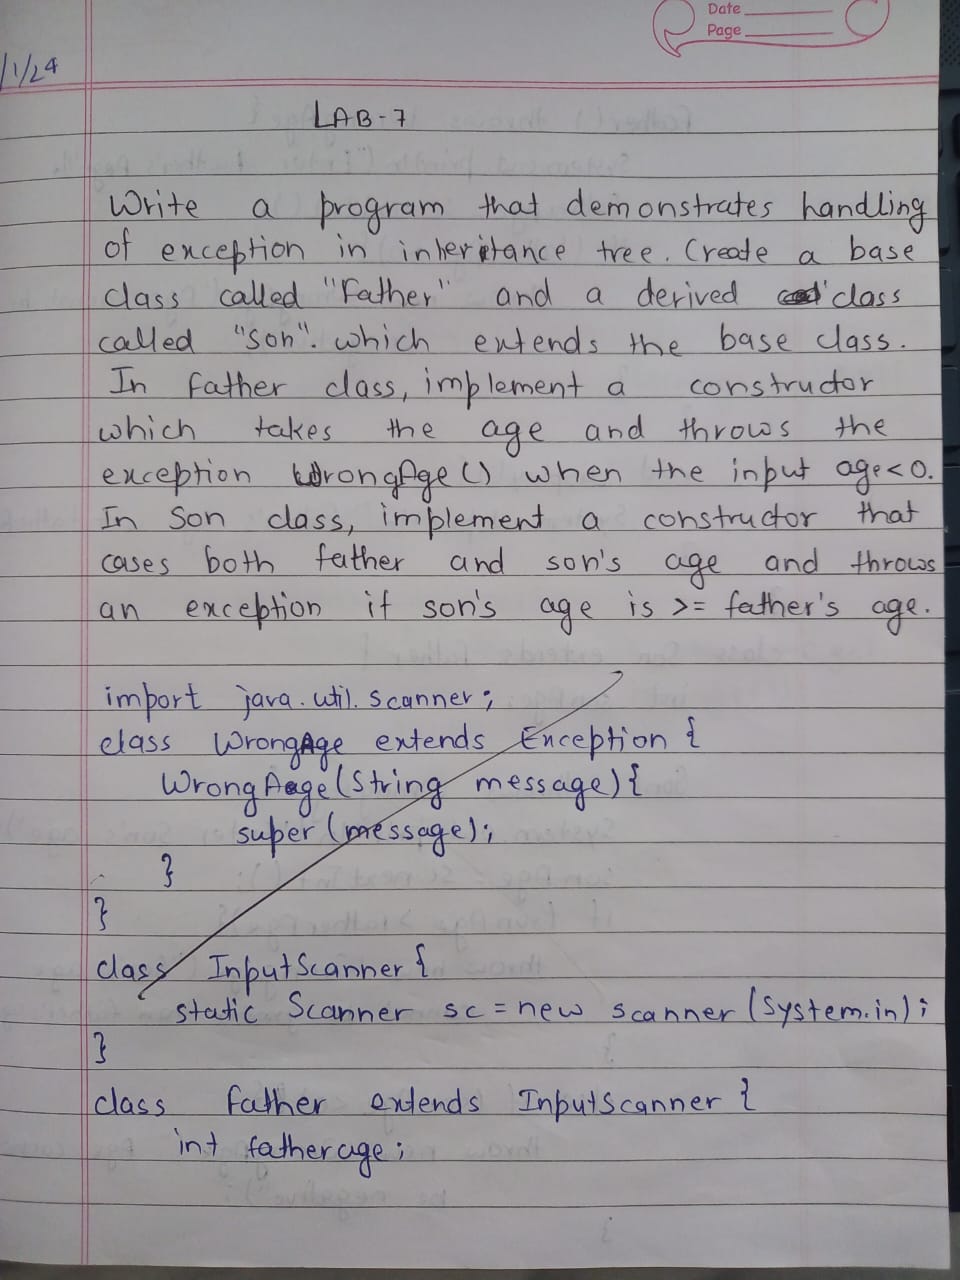 Date
Page
/1/24
LAB-7
Write a program that demonstrates handling
of exception in inheritance tree. Create a base
class called "Father" and a derived class
called "Son". which extends the base class.
In Father class, implement a constructor
which takes the age and throws the
exception WrongAge() when the input age<0.
In Son class, implement a constructor that
cases both father and son's age and throws
an exception if son's age is >= father's age.
import java.util.Scanner;
class WrongAge extends Exception {
WrongAge(String message){
super(message);
}
}
class InputScanner {
static Scanner sc = new Scanner(System.in);
}
class Father extends InputScanner {
int fatherage;